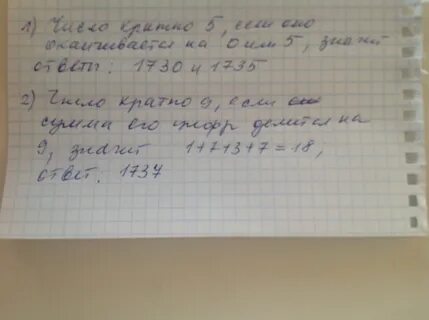 1) Число кратно 5, если оно
оканчивается на 0 или 5, значит
ответы: 1730 и 1735
2) Число кратно 9, если
сумма его цифр делится на
9, значит 1+7+3+7=18,
ответ: 1737